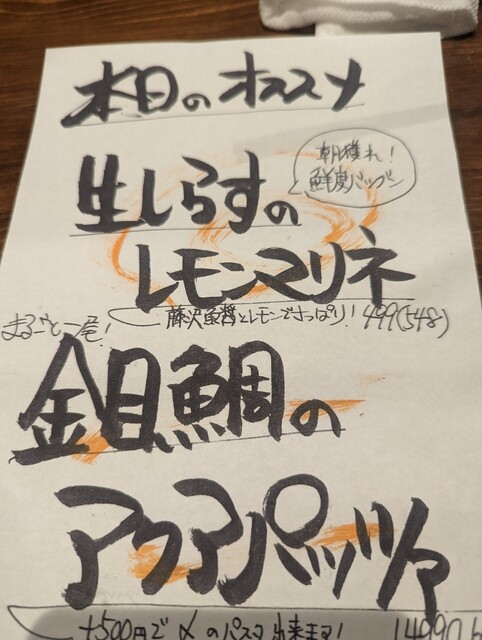 本日のオススメ
朝穫れ!
鮮度バツグン
生しらすの
レモンマリネ
藤沢魚醤とレモンでさっぱり! 499(548)
まるごと一尾!
金目鯛の
アクアパッツァ
+500円で〆のパスタ出来ます!